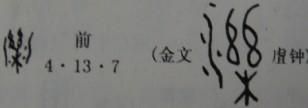 前
4·13·7 (金文 虘钟)